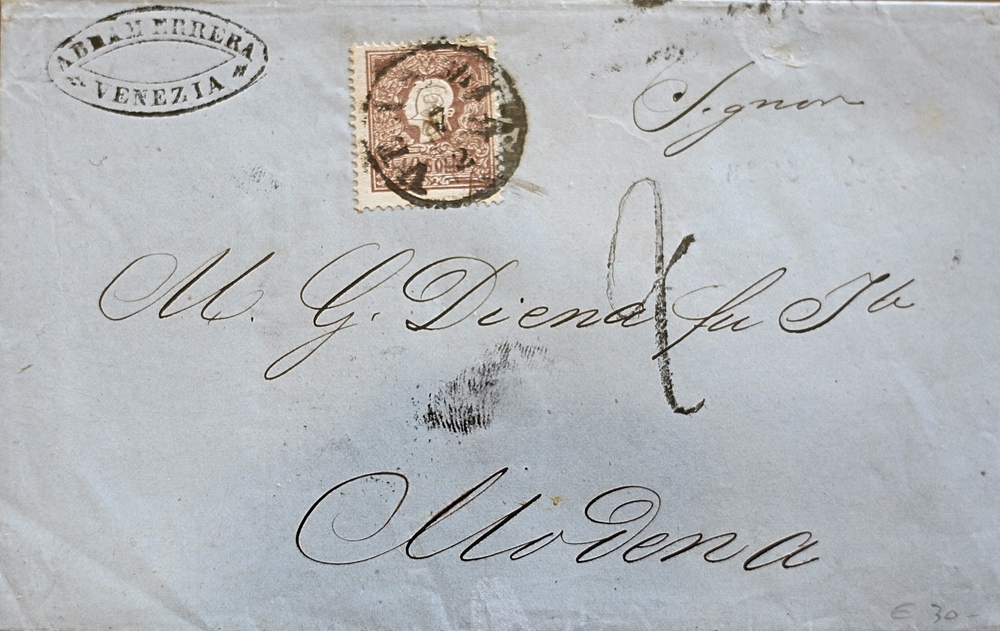 ABRAM ERRERA
VENEZIA
Signor
M. G. Diena fu Jb
Modena
€ 30-